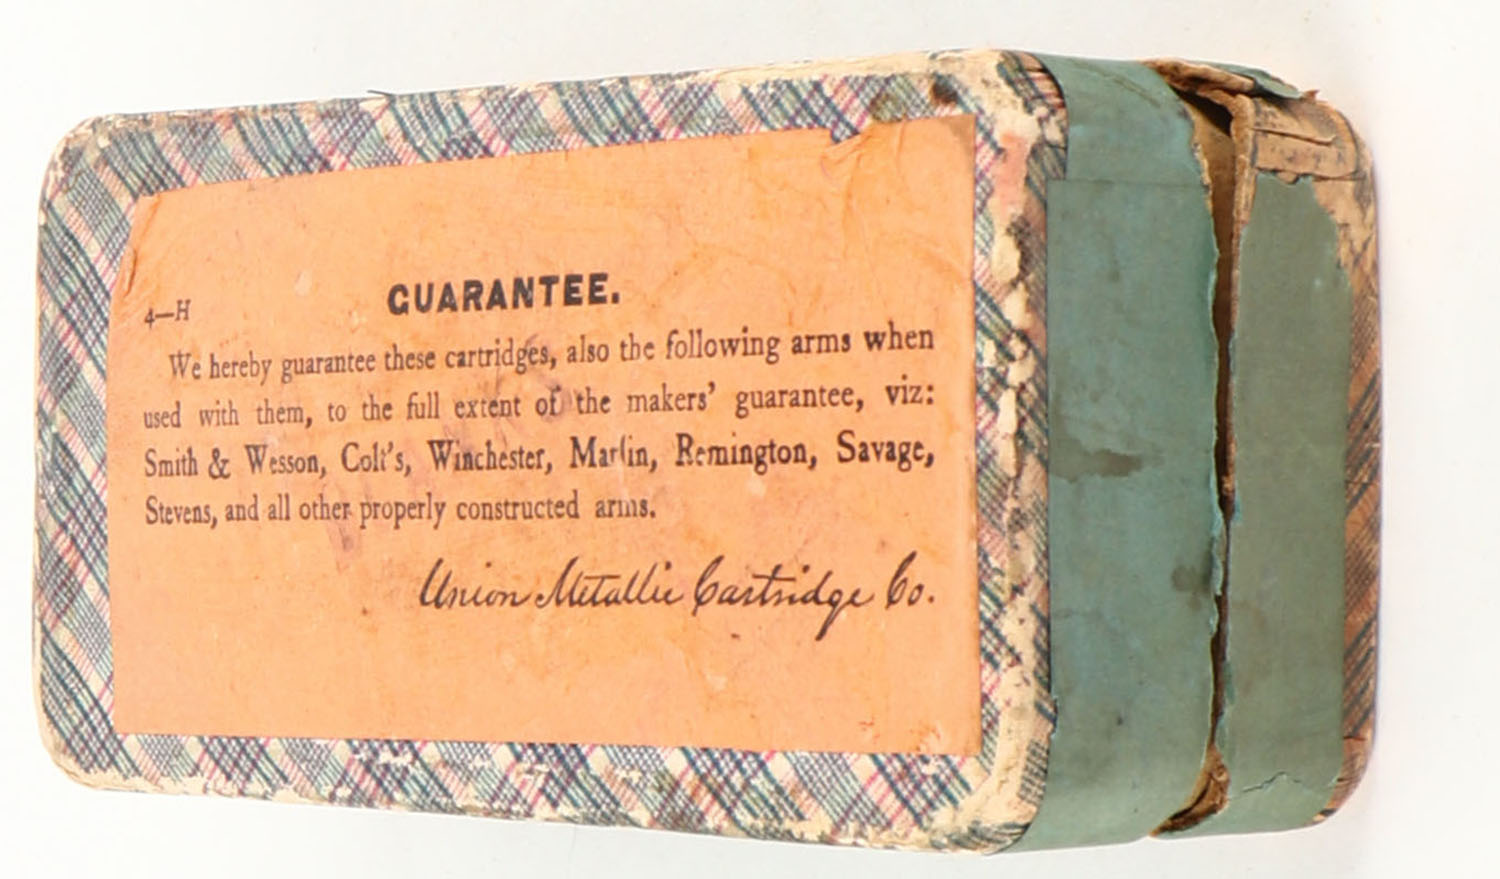 GUARANTEE.
4—H
We hereby guarantee these cartridges, also the following arms when
used with them, to the full extent of the makers' guarantee, viz:
Smith & Wesson, Colt's, Winchester, Marlin, Remington, Savage,
Stevens, and all other properly constructed arms.
Union Metallic Cartridge Co.